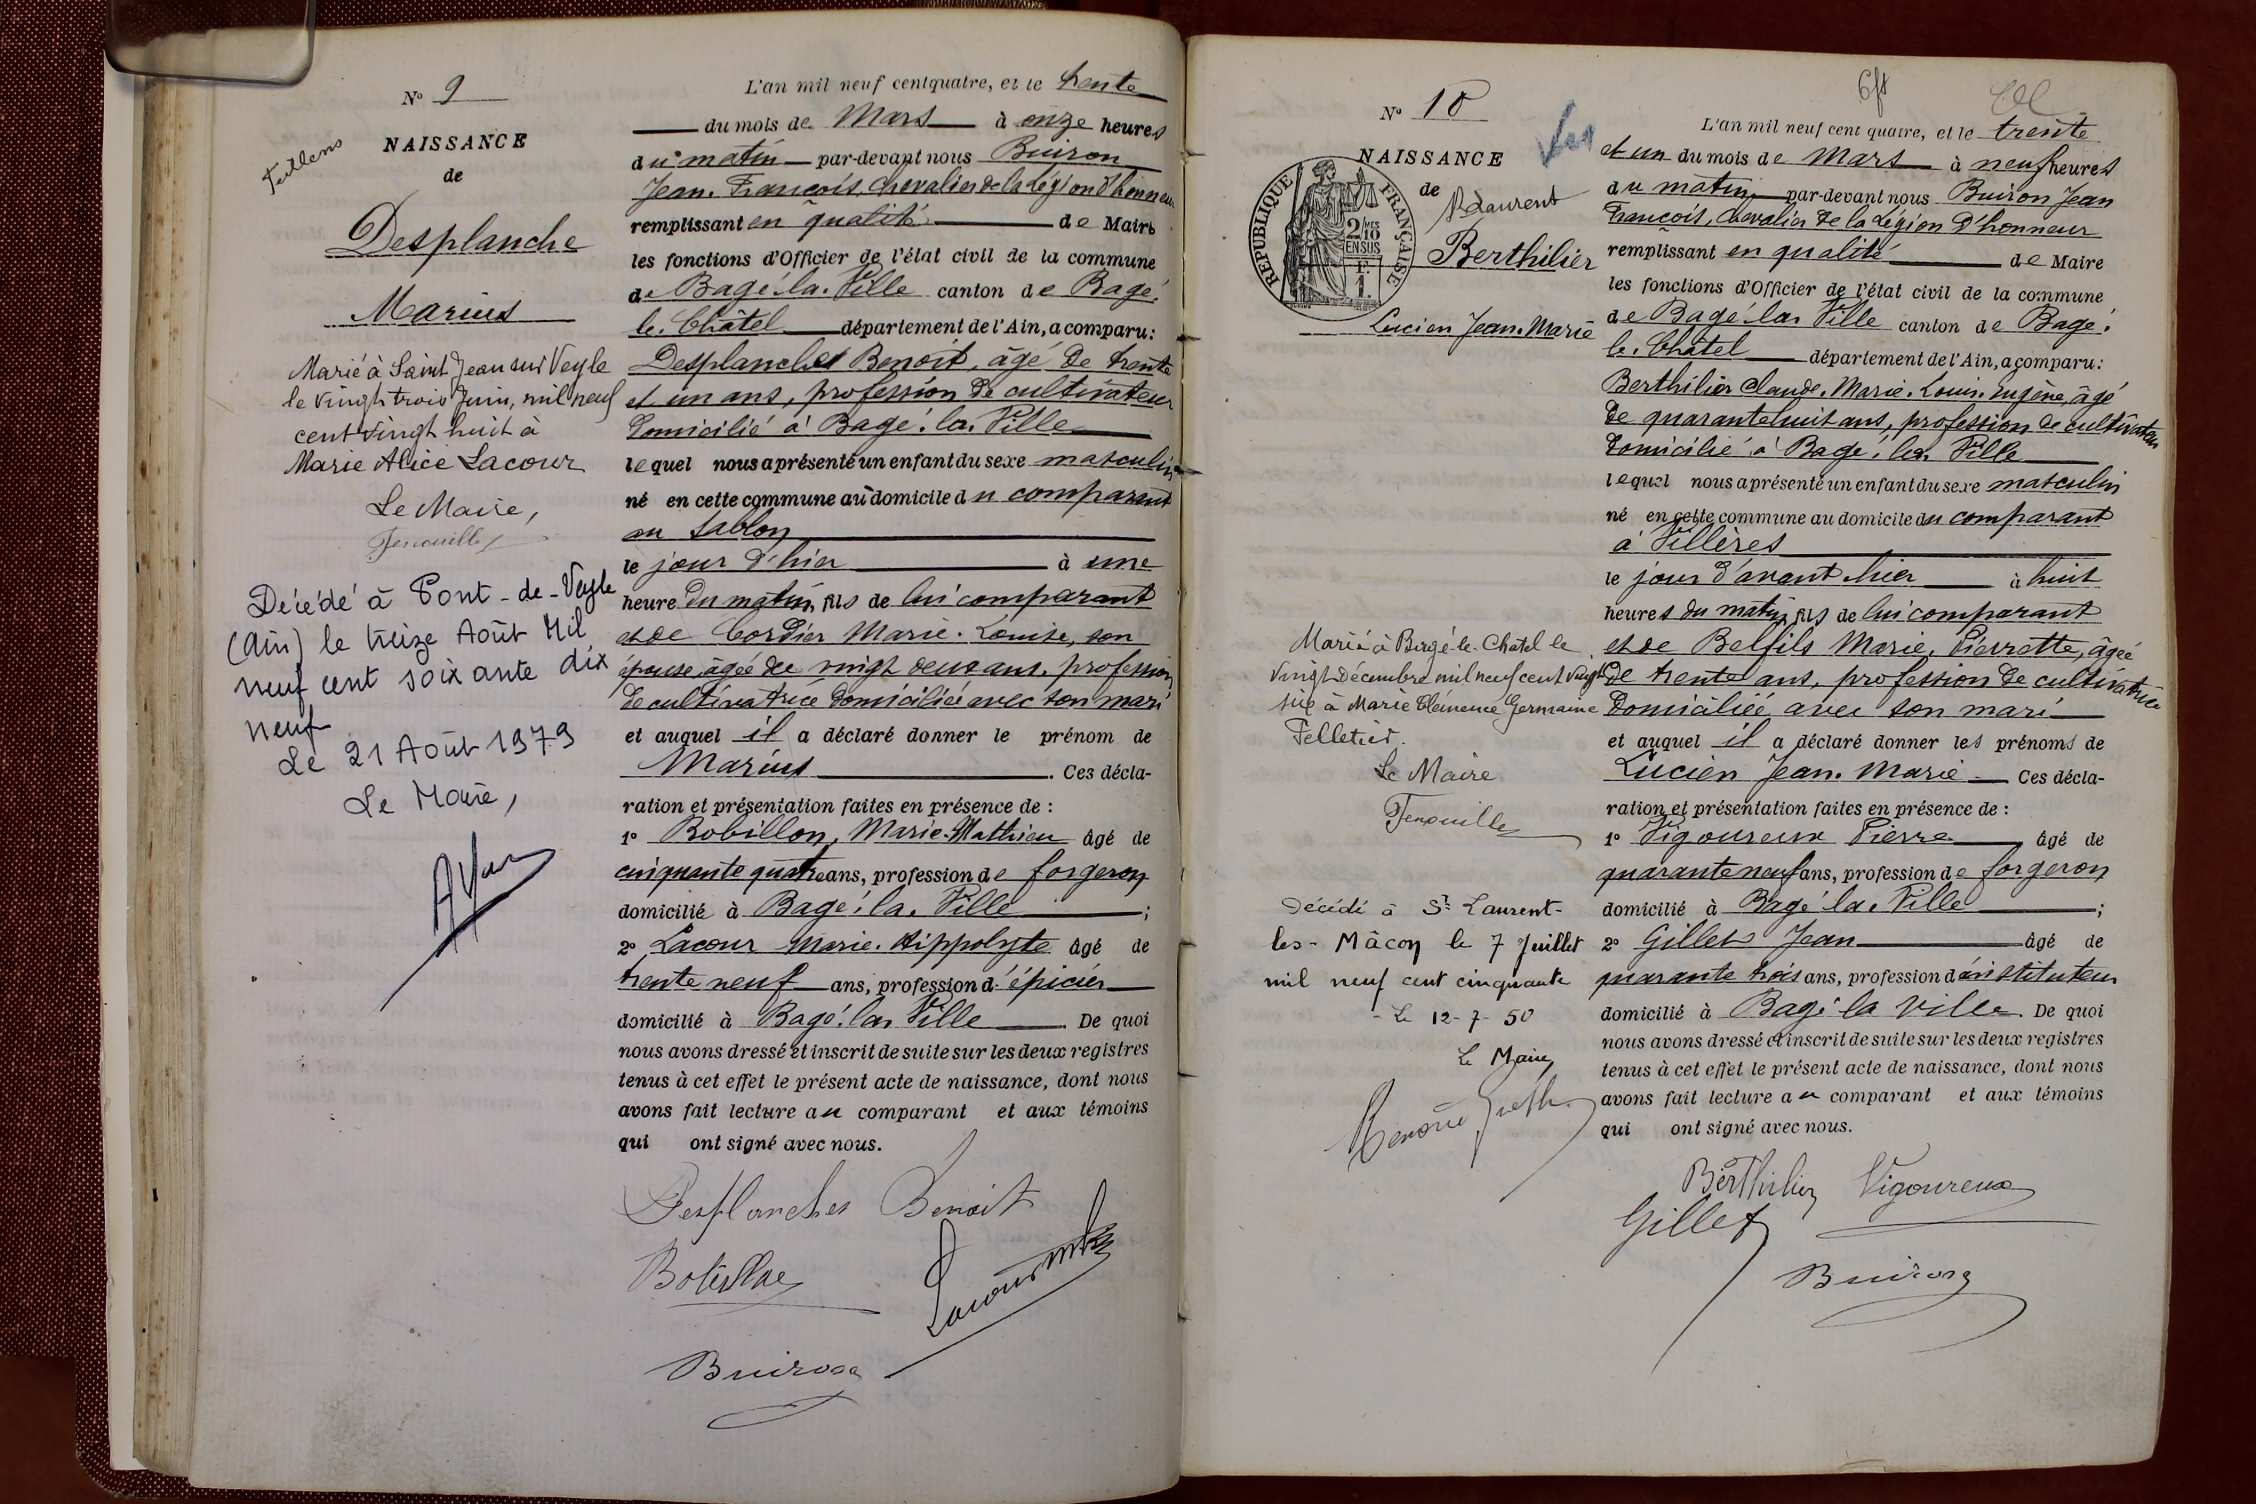 N° 9
NAISSANCE
de
Desplanche
Marius
Marié à Saint Jean sur Veyle
le vingt trois Juin, mil neuf
cent vingt huit à
Marie Alice Lacour
Le Maire,
Décédé à Pont-de-Veyle
(Ain) le treize Août Mil
neuf cent soixante dix
neuf
Le 21 Août 1979
Le Maire,
L'an mil neuf cent quatre, et le trente
du mois de Mars à onze heures
du matin par-devant nous Buiron
Jean. François, Chevalier de la Légion d'honneur
remplissant en qualité de Maire
les fonctions d'Officier de l'état civil de la commune
de Bagé. la. Ville canton de Bagé.
le. Châtel département de l'Ain, a comparu:
Desplanches Benoit, âgé de trente
et un ans, profession de cultivateur
domicilié à Bagé. la. Ville
lequel nous a présenté un enfant du sexe masculin
né en cette commune au domicile du comparant
au Sablon
le jour d'hier à une
heure du matin, fils de lui comparant
et de Cordier Marie. Louise, son
épouse, âgée de vingt deux ans, profession
de cultivatrice domiciliée avec son mari
et auquel il a déclaré donner le prénom de
Marius. Ces décla-
ration et présentation faites en présence de :
1° Robillon, Marie. Mathieu âgé de
cinquante quatre ans, profession de forgeron
domicilié à Bagé. la. Ville ;
2° Lacour Marie. Hippolyte âgé de
trente neuf ans, profession d'épicier
domicilié à Bagé. la. Ville. De quoi
nous avons dressé et inscrit de suite sur les deux registres
tenus à cet effet le présent acte de naissance, dont nous
avons fait lecture au comparant et aux témoins
qui ont signé avec nous.
Desplanches Benoit
Buiron
N° 10
NAISSANCE
de
RÉPUBLIQUE FRANÇAISE
2/10
EN SUS
1.
St Laurent
Berthilier
Lucien Jean. Marie
Marié à Bagé-le-Chatel le
vingt Décembre mil neuf cent vingt
six à Marie Clémence Germaine
Pelletier.
Le Maire
Décédé à St Laurent-
les-Mâcon le 7 Juillet
mil neuf cent cinquante
- Le 12-7-50
Le Maire
L'an mil neuf cent quatre, et le trente
et un du mois de Mars à neuf heures
du matin par-devant nous Buiron Jean
François, Chevalier de la Légion d'honneur
remplissant en qualité de Maire
les fonctions d'Officier de l'état civil de la commune
de Bagé. la. Ville canton de Bagé.
le. Châtel département de l'Ain, a comparu:
Berthilier Claude. Marie. Louis. Eugène, âgé
de quarante huit ans, profession de cultivateur
domicilié à Bagé. la. Ville
lequel nous a présenté un enfant du sexe masculin
né en cette commune au domicile du comparant
à Villères
le jour d'avant hier à huit
heures du matin, fils de lui comparant
et de Belfils Marie. Pierrette, âgée
de trente ans, profession de cultivatrice
domiciliée avec son mari
et auquel il a déclaré donner les prénoms de
Lucien Jean. Marie Ces décla-
ration et présentation faites en présence de :
1° Vigoureux Pierre âgé de
quarante neuf ans, profession de forgeron
domicilié à Bagé la. Ville ;
2° Gillet Jean âgé de
quarante trois ans, profession d'instituteur
domicilié à Bagé la Ville. De quoi
nous avons dressé et inscrit de suite sur les deux registres
tenus à cet effet le présent acte de naissance, dont nous
avons fait lecture au comparant et aux témoins
qui ont signé avec nous.
Berthilier Vigoureux
Gillet
Buiron